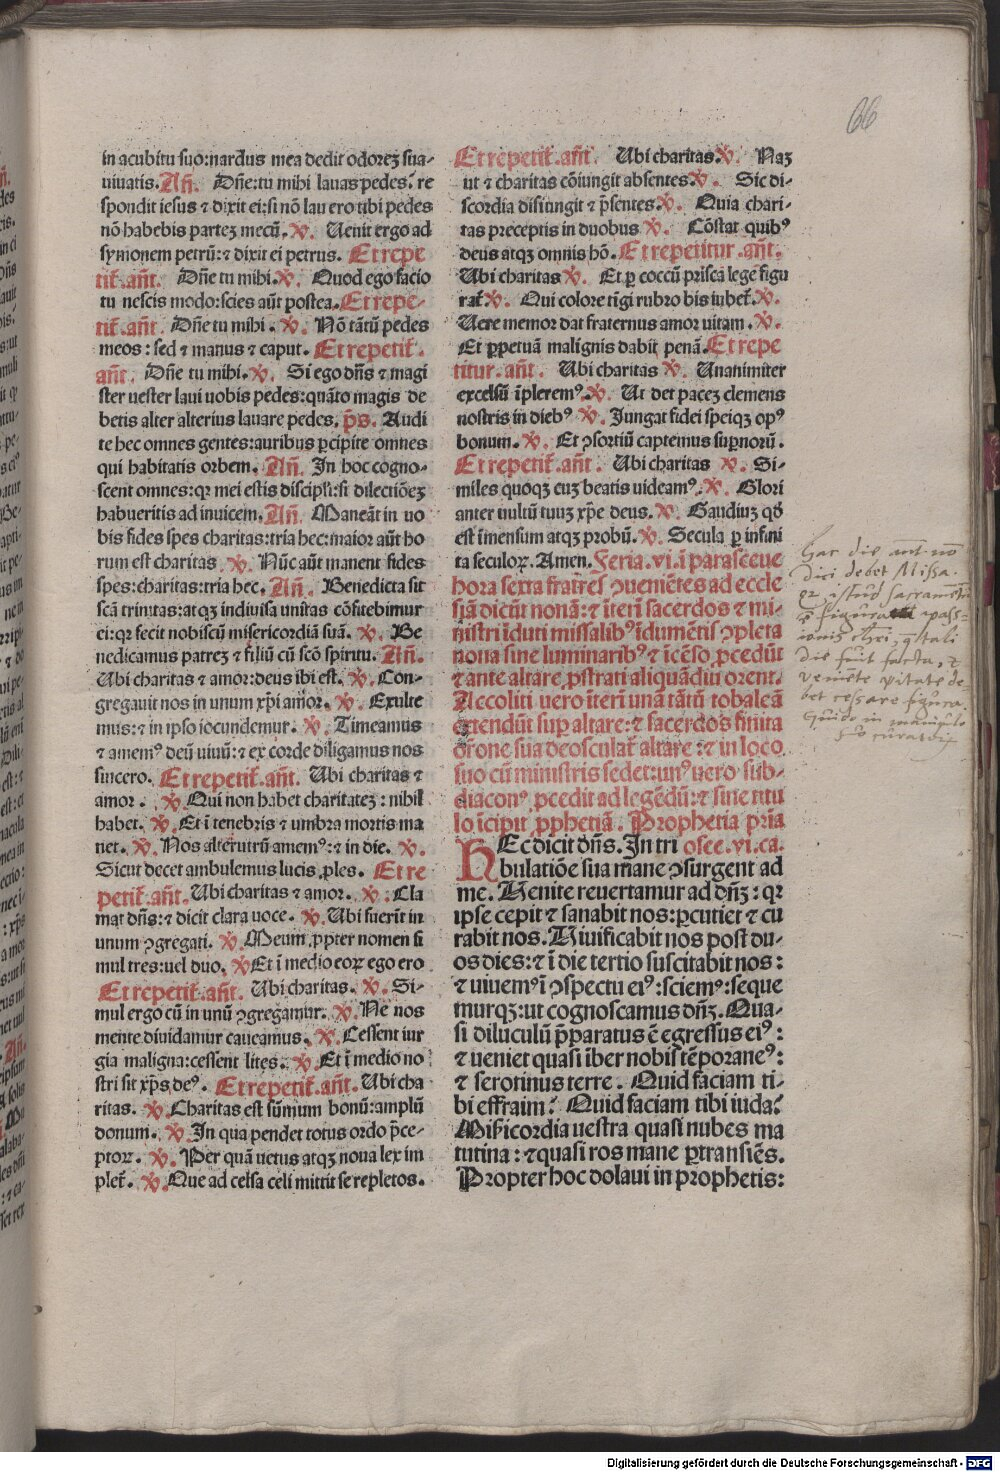 66
in acubitu suo:nardus mea dedit odoreʒ sua-
uiuatis. Añ. Dñe:tu mihi lauas pedes: re
spondit iesus ⁊ dixit ei:si nō lau ero tibi pedes
nō habebis parteʒ mecū. ℣. Uenit ergo ad
symonem petrū:⁊ dixit ei petrus. Et repe
tit̄.añt. Dñe tu mihi.℣. Quod ego facio
tu nescis modo:scies aūt postea.Et repe-
tit̄.añt. Dñe tu mihi . ℣. Nō tātū pedes
meos: sed ⁊ manus ⁊ caput. Et repetit̄.
añt. Dñe tu mihi.℣. Si ego dñs ⁊ magi
ster uester laui uobis pedes:quāto magis de
betis alter alterius lauare pedes. p̄s. Audi
te hec omnes gentes:auribus ꝑcipite omnes
qui habitatis orbem. Añ. In hoc cogno-
scent omnes:qꝛ mei estis discipli:si dilectiōeʒ
habueritis ad inuicem. Añ. Maneāt in uo
bis fides spes charitas:tria hec:maior aūt ho
rum est charitas ℣. Nūc aūt manent fides
spes:charitas:tria hec. Añ. Benedicta sit
scā trinitas:atqʒ indiuisa unitas cōfitebimur
ei:qꝛ fecit nobiscū misericordiā suā. ℣. Be
nedicamus patreʒ ⁊ filiū cū scō spiritu. Añ.
Ubi charitas ⁊ amor:deus ibi est. ℣. Con-
gregauit nos in unum xp̄i amor. ℣. Exulte
mus:⁊ in ipso iocundemur. ℣. Timeamus
⁊ amemꝰ deū uiuū:⁊ ex corde diligamus nos
sincero. Et repetit̄.añt. Ubi charitas ⁊
amor. ℣. Qui non habet charitateʒ : nihil
habet. ℣. Et ī tenebris ⁊ umbra mortis ma
net. ℣. Nos alterutrū amemꝰ:⁊ in die. ℣.
Sicut decet ambulemus lucis ꝓles. Et re
petit̄.añt. Ubi charitas ⁊ amor. ℣. Cla
mat dñs:⁊ dicit clara uoce. ℣. Ubi fuerīt in
unum ꝯgregati. ℣. Meum ꝓpter nomen si
mul tres:uel duo. ℣. Et ī medio eoꝝ ego ero
Et repetit̄.añt. Ubi charitas. ℣. Si-
mul ergo cū in unū ꝯgregamur. ℣. Ne nos
mente diuidamur caueamus. ℣. Cessent iur
gia maligna:cessent lites. ℣. Et ī medio no
stri sit xp̄s deꝰ. Et repetit̄.añt. Ubi cha
ritas. ℣. Charitas est sūmum bonū:amplū
donum. ℣. In qua pendet totus ordo p̄ce-
ptoꝝ. ℣. Per quā uetus atqʒ noua lex im
plet̄. ℣. Que ad celsa celi mittit se repletos.
Et repetit̄.añt. Ubi charitas.℣. Naʒ
ut ⁊ charitas cōiungit absentes.℣. Sic di-
scordia disiungit ⁊ p̄sentes.℣. Quia chari-
tas preceptis in duobus ℣. Cōstat quibꝰ
deus atqʒ omnis hō. Et repetitur.añt.
Ubi charitas ℣. Et ꝑ coccū prisca lege figu
rat̄ ℣. Qui colore tīgi rubro bis iubet̄.℣.
Uere memor dat fraternus amor uitam.℣.
Et ꝑpetuā malignis dabit penā.Et repe
titur.añt. Ubi charitas ℣. Unanimiter
excelsū īpleremꝰ.℣. Ut det paceʒ clemens
nostris in diebꝰ ℣. Jungat fidei speiqʒ opꝰ
bonum. ℣. Et ꝯsortiū captemus suꝑnorū.
Et repetit̄.añt. Ubi charitas ℣. Si-
miles quoqʒ cuʒ beatis uideamꝰ.℣. Glori
anter uultū tuuʒ xp̄e deus.℣. Gaudiuʒ qđ
est īmensum atqʒ probū.℣. Secula ꝑ infini
ta seculoꝝ. Amen. Feria.vi.ī parasceue
hora sexta fratres ꝯuemētes ad eccle
siā dictūt nonā:⁊ iterū sacerdos ⁊ mi-
nistri īduti missalibꝰ īdumētis ꝯpleta
nona sine luminaribꝰ ⁊ īcēso ꝓcedūt
⁊ ante altare ꝓstrati aliquādiu orent.
Accoliti uero iterū unā tātū tobaleā
extendūt suꝑ altare:⁊ sacerdos finita
orōne sua deosculat̄ altare:⁊ in loco
suo cū ministris sedet:unꝰ uero sub-
diaconꝰ ꝓcedit ad legēdū:⁊ sine titu
lo īcipit ꝓphetiā. Prophetia pria
HEc dicit dñs. In tri osee.vi.ca.
bulatiōe sua mane ꝯsurgent ad
me. Uenite reuertamur ad dñʒ : qꝛ
ipse cepit ⁊ sanabit nos:ꝑcutiet ⁊ cu
rabit nos. Uiuificabit nos post du-
os dies:⁊ ī die tertio suscitabit nos:
⁊ uiuemꝰ ī ꝯspectu eiꝰ:sciemꝰ:seque
murqʒ:ut cognoscamus dñʒ. Qua-
si diluculū p̄paratus ē egressus eiꝰ:
⁊ ueniet quasi iber nobis tēporaneꝰ:
⁊ serotinus terre. Quid faciam ti-
bi effraim: Quid faciam tibi iuda:
Misicordia uestra quasi nubes ma
tutina:⁊ quasi ros mane ꝑtransiēs.
Propter hoc dolaui in prophetis:
Hac die aut nō
dici debet Missa.
qꝛ istud sacramētū
ē figura pass-
ionis chri, q tali
die fuit facta, ⁊
veniēte v̄itate de
bet cessare figura.
Guido in manipulo
curatoꝝ
Digitalisierung gefördert durch die Deutsche Forschungsgemeinschaft - DFG